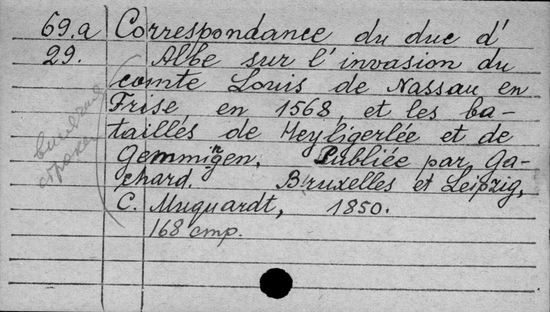 69.a Correspondance du duc d'
29. Albe sur l'invasion du
comte Louis de Nassau en
Frise, en 1568, et les ba-
tailles de Heyligerlée et de
Gemmingen. Publiée par Ga-
chard. Bruxelles et Leipzig,
C. Muquardt, 1850.
168 стр.